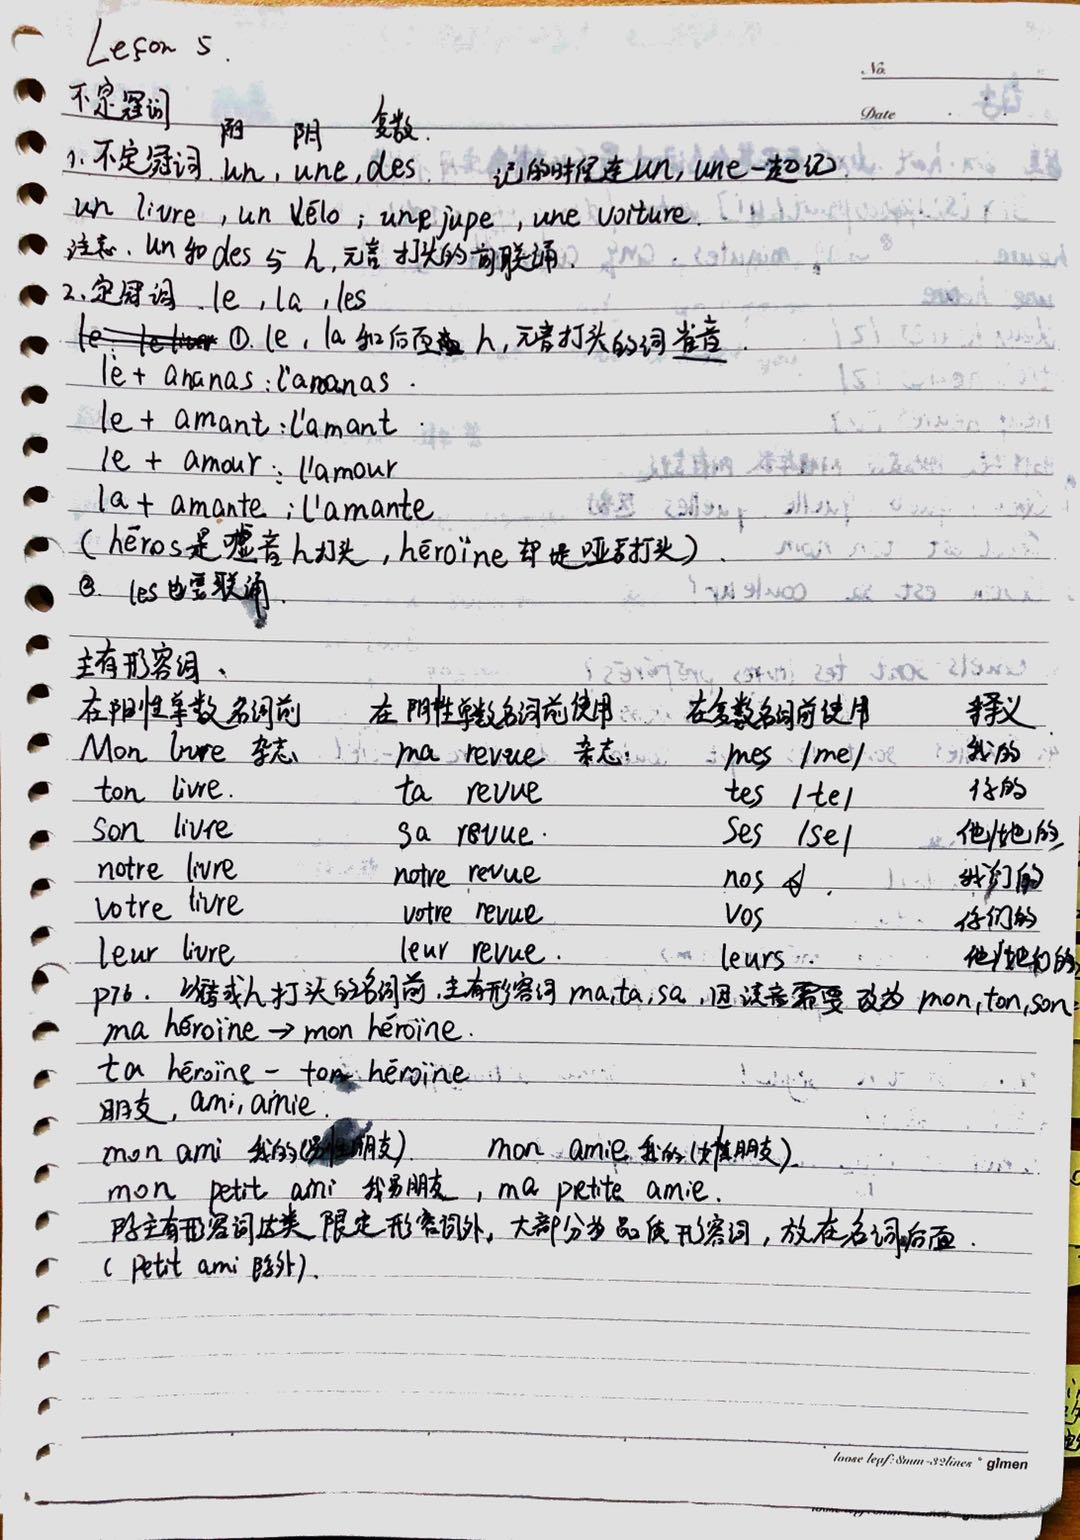 Leçon 5.
No.
Date
不定冠词
阳 阴 复数.
1. 不定冠词. un, une, des. 记的时候连un, une一起记.
un livre, un vélo; une jupe, une voiture.
注意. un和des与h,元音打头的词联诵.
2. 定冠词. le, la, les
①. le, la和后面 h,元音打头的词省音.
le + ananas: l'ananas.
le + amant: l'amant.
le + amour: l'amour
la + amante: l'amante
(héros是嘘音h打头, héroïne却是哑音打头).
②. les也要联诵.
主有形容词.
在阳性单数名词前 在阴性单数名词前使用 在复数名词前使用 释义
Mon livre 杂志 ma revue 杂志: mes /me/ 我的
ton livre. ta revue tes /te/ 你的
son livre sa revue. ses /se/ 他/她的
notre livre notre revue nos 我们的
votre livre votre revue vos 你们的
leur livre leur revue. leurs. 他/她们的
p76. 以元音或h打头的名词前,主有形容词ma, ta, sa,因读音需要改为mon, ton, son
ma héroïne → mon héroïne.
ta héroïne – ton héroïne
朋友, ami, amie.
mon ami 我的(男性朋友). mon amie 我的(女性朋友)
mon petit ami 我男朋友, ma petite amie.
除主有形容词这类限定形容词外,大部分为品质形容词,放在名词后面.
(petit ami 除外).
loose leaf: 8mm-32lines glmen